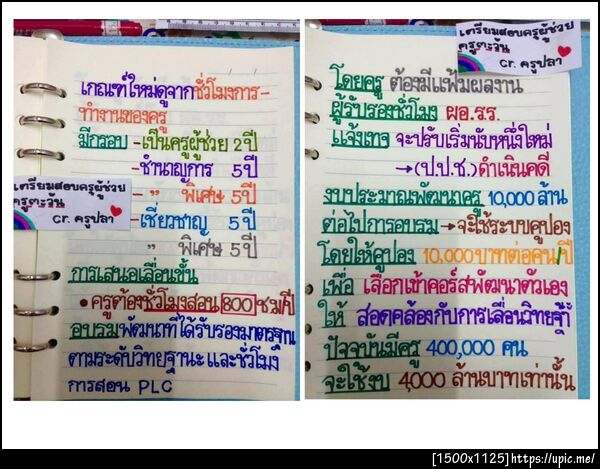 เกณฑ์ใหม่ดูจากชั่วโมงการ-
ทำงานของครู
มีกรอบ -เป็นครูผู้ช่วย 2 ปี
-ชำนาญการ 5 ปี
- " พิเศษ 5 ปี
-เชี่ยวชาญ 5 ปี
" พิเศษ 5 ปี
เตรียมสอบครูผู้ช่วย
ครูตะวัน
cr. ครูปลา
การเสนอเลื่อนขั้น
• ครูต้องชั่วโมงสอน 800 ชม/ปี
อบรมพัฒนาที่ได้รับรองมาตรฐาน
ตามระดับวิทยฐานะ และชั่วโมง
การสอน PLC
เตรียมสอบครูผู้ช่วย
ครูตะวัน
cr. ครูปลา
โดยครู ต้องมีแฟ้มผลงาน
ผู้รับรองชั่วโมง ผอ.ร.ร.
แจ้งเท็จ จะปรับเริ่มนับหนึ่งใหม่
→(ป.ป.ช.)ดำเนินคดี
งบประมาณพัฒนาครู 10,000 ล้าน
ต่อไปการอบรม → จะใช้ระบบคูปอง
โดยให้คูปอง 10,000 บาทต่อคน/ปี
เพื่อ เลือกเข้าคอร์สพัฒนาตัวเอง
ให้ สอดคล้องกับการเลื่อนวิทยฐานะ
ปัจจุบันมีครู 400,000 คน
จะใช้งบ 4,000 ล้านบาทเท่านั้น
[1500x1125]https://upic.me/